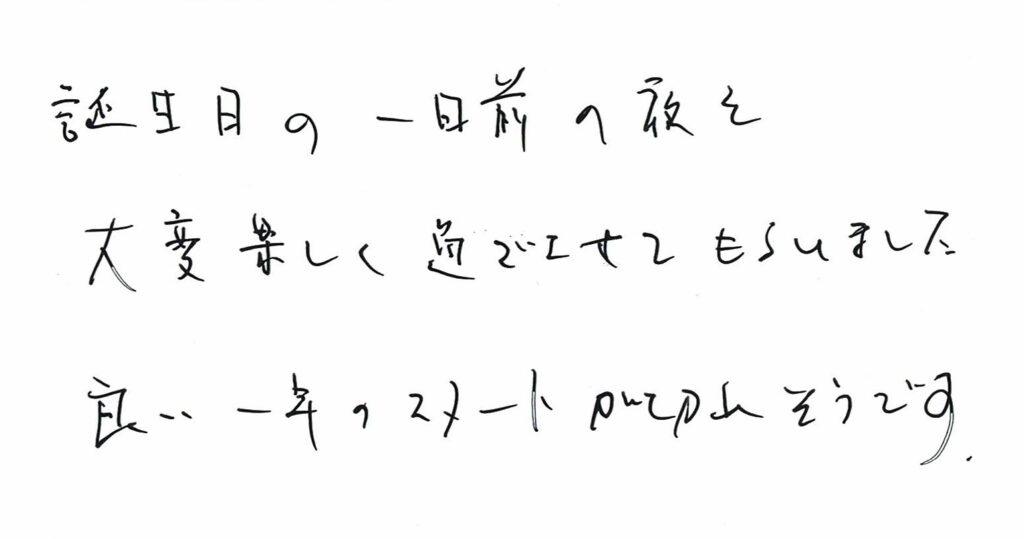 誕生日の一日前の夜を
大変楽しく過ごさせてもらいました
良い一年のスタートがきれそうです.